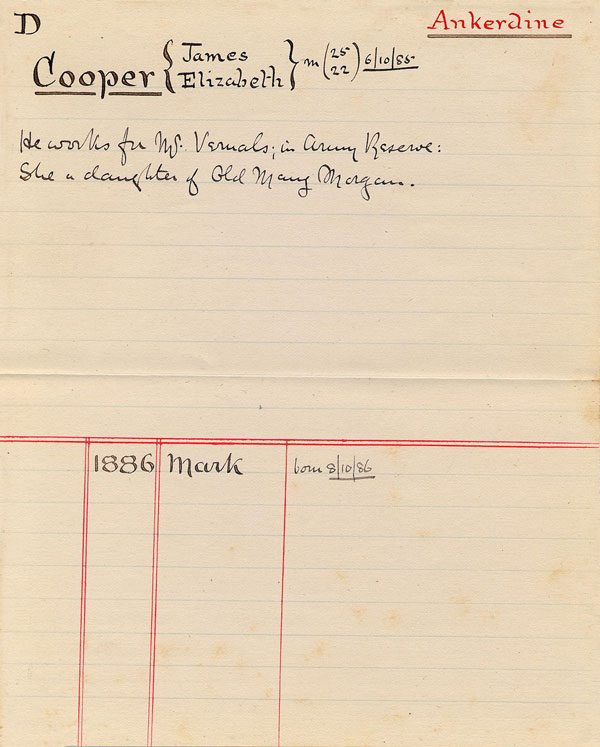 D
Ankerdine
Cooper { James Elizabeth } m ( 25 22 ) 6/10/85
He works for Mr. Vernals; in Army Reserve:
She a daughter of Old Mary Morgan.
1886 Mark born 8/10/86